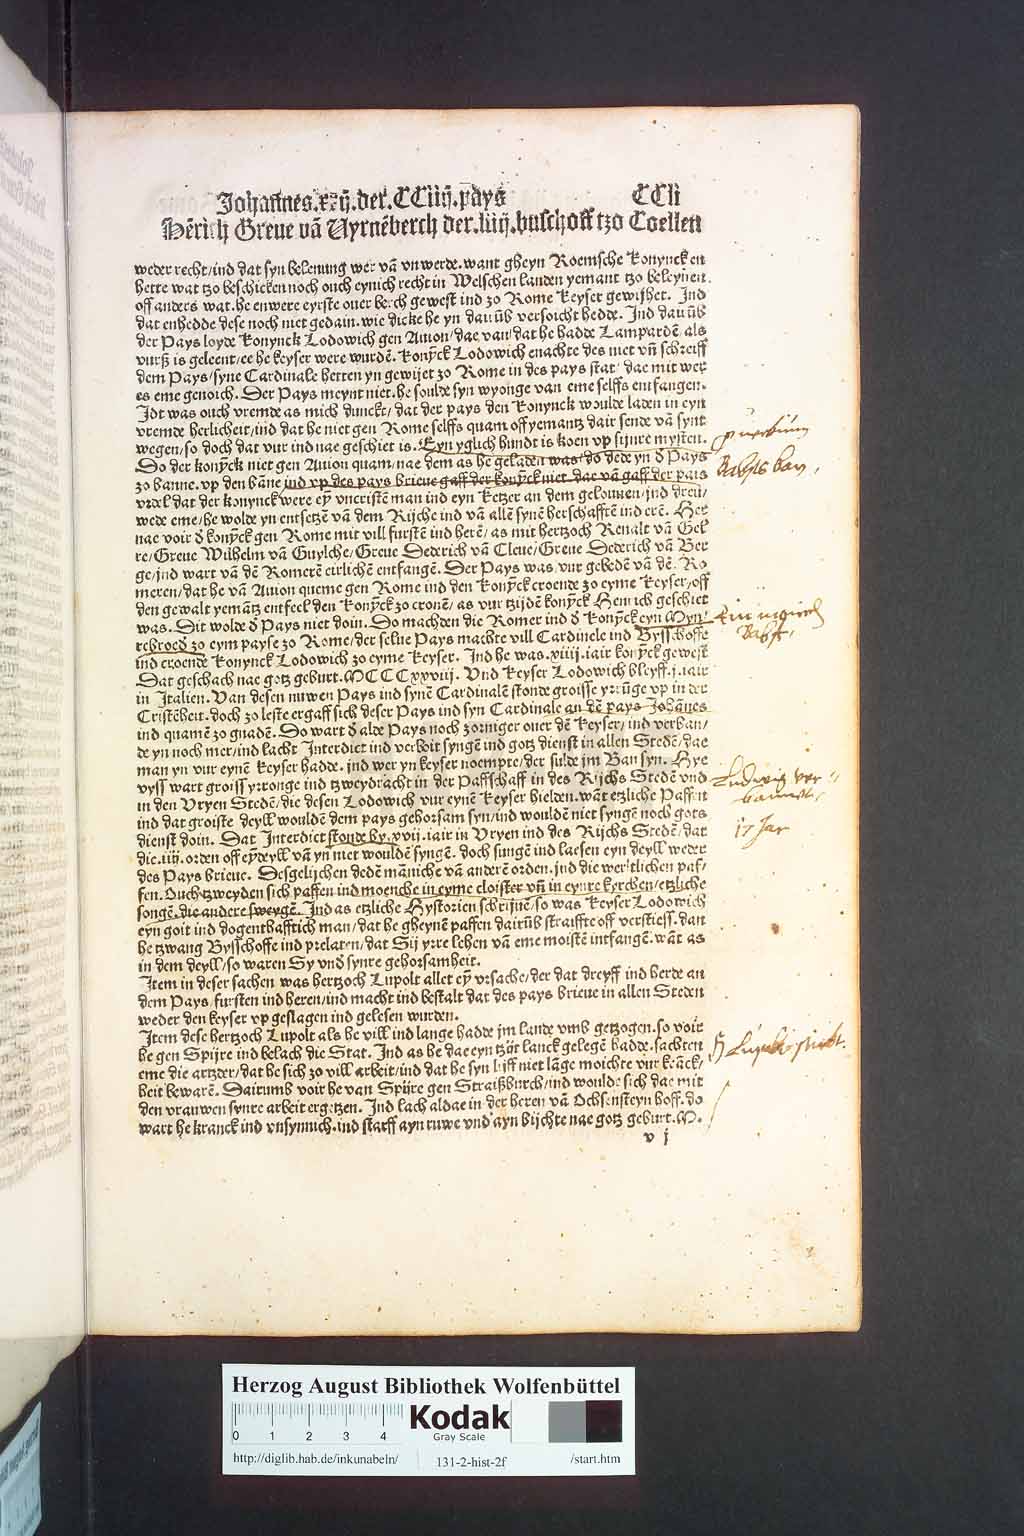 Johannes.xxij.der.CCiiij.pays CCli
Hērich Greue vā Vyrnēberch der.liiij.buschoff tzo Coellen
weder recht/ind dat syn belenung wer vā vnwerde.want gheyn Roemsche Konynck en
hette wat tzo beschicken noch ouch eynich recht in Welschen landen yemant tzo beleynen.
off anders wat.he enwere eyrste ouer berch gewest ind zo Rome Keyser gewijhet. Ind
dat enhedde dese noch niet gedain.wie dicke he yn dauūb versoicht hedde. Ind dauūb
der Pays loyde Konynck Lodowich gen Auion/dae van/dat he hadde Lampardē als
vurß is geleent/ee he keyser were wurdē. Konȳck Lodowich enachte des niet vn̄ schreiff
dem Pays/syne Cardinale hetten yn gewijet zo Rome in des pays stat/dae mit wer
es eme genoich. Der Pays meynt niet.he soulde syn wyonge van eme selffs entfangen.
Idt was ouch vremde as mich dunckt/dat der pays den Konynck woulde laden in eyn
vremde herlicheit/ind dat he niet gen Rome selffs quam off yemantz dair sende vā synt
wegen/so doch dat vur ind nae geschiet is. Eyn yglich hundt is koen vp sijnre mysten.
Do der konȳck niet gen Auion quam/nae dem as he geladen was/do dede yn d Pays
zo banne.vp den bāne ind vp des pays brieue gaff der konȳck niet.dae vā gaff der pais
vrdel dat der konynck were eȳ vncristē man ind eyn Ketzer an dem gelouuen/ind dreu/
wede eme/he wolde yn entsetzē vā dem Rijche ind vā allē synē herschaffrē ind erē. Her
nae voir d konȳck gen Rome mit vill furstē ind herē/as mit hertzoch Renalt vā Gel
re/Greue Wilhelm vā Guylche/Greue Dederich vā Cleue/Greue Dederich vā Ber
ge/ind wart vā dē Romerē eirlichē entfangē. Der Pays was vur gebedē vā dē Ro
meren/dat he vā Auion queme gen Rome ind den Konȳck croende zo eyme Keyser/off
den gewalt yemātz entfeel den Konȳck zo cronē/as vur tzijdē konȳck Henrich geschiet
was. Dit wolde d Pays niet doin. Do machden die Romer ind d Konȳck eyn Myn/
rebroed zo eym payse zo Rome/der selue Pays machte vill Cardinele ind Bysschoffe
ind croende Konynck Lodowich zo eyme Keyser. Ind he was.xiiij.iair konȳck gewest
Dat geschach nae gotz geburt.MCCCxxviij. Vnd Keyser Lodowich bleyff.j.iair
in Italien. Van desen nuwen Pays ind synē Cardinalē stonde groisse yrrūge vp in der
Cristēheit.doch zo leste ergaff sich deser Pays ind syn Cardinale an dē pays Johānes
ind quamē zo gnadē. Do wart d alde Pays noch zorniger ouer dē Keyser/ind verban/
de yn noch mer/ind lacht Interdict ind verboit syngē ind gotz dienst in allen Stedē/dae
man yn vur eynē Keyser hadde.ind wer yn keyser noempte/der sulde jm Ban syn. Hye
vyss wart groiss yrronge ind tzweydracht in der Paffschaff in des Rijchs Stedē vnd
in den Vryen Stedē/die desen Lodowich vur eynē Keyser hielden.wāt etzliche Paffen
ind dat groiste deyll wouldē dem pays gehorsam syn/ind wouldē niet syngē noch gots
dienst doin. Dat Interdict stonde by.xvij.iair in Vryen ind des Rijchs Stedē/dat
die.iiij.orden off eȳdeyll vā yn̄ niet wouldē syngē. doch sungē ind laesen eyn deyll weder
des Pays brieue. Desgelijchen dedē māniche vā anderē ordē.ind die werltlichen paf/
fen. Ouch tzweyden sich paffen ind moeniche in eyme cloister vn̄ in eynre kyrchen/etzliche
songē.die andere sweygē. Ind as etzliche Hystorien schrijuē/so was Keyser Lodowich
eyn goit ind dogenthafftich man/dat he gheynē paffen dairūb straiffte off verstiess.dan
he tzwang Bysschoffe ind prelaten/dat Sij yrre lehen vā eme moistē intfangē.wāt as
in dem deyll/so waren Sy vnd synre gehorsamheit.
Item in deser sachen was hertzoch Lupolt allet eȳ vrsache/der dat dreyff ind herde an
dem Pays/fursten ind heren/ind macht ind bestalt dat des pays brieue in allen Steden
weder den keyser vp geslagen ind gelesen wurden.
Item dese hertzoch Lupolt als he vill ind lange hadde jm lande vmb getzogen.so voir
he gen Spijre ind belach die Stat. Ind as he dae eyn tzijt lanck gelegē hadde.sachten
eme die artzder/dat he sich zo vill arbeit/ind dat he syn lijff niet lāge moichte vur krāck/
heit bewarē. Dairumb voir he van Spijre gen Straißburch/ind woulde sich dae mit
den vrauwen synre arbeit ergetzen. Ind lach aldae in der heren vā Ochsensteyn hoff.do
wart he kranck ind vnsynnich.ind starff ayn ruwe vnd ayn bijchte nae gotz geburt.M.
v j
Babsts ban,
Babst,
Ludwig ver-
bannet,
17 Jar
Herzog August Bibliothek Wolfenbüttel
0 1 2 3 4
Kodak
Gray Scale
http://diglib.hab.de/inkunabeln/ 131-2-hist-2f /start.htm